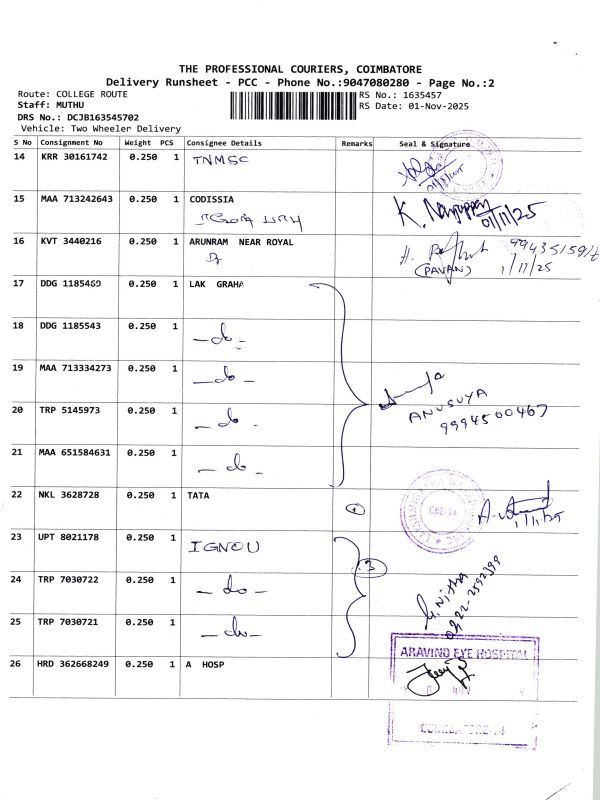 THE PROFESSIONAL COURIERS, COIMBATORE
Delivery Runsheet - PCC - Phone No.:9047080280 - Page No.:2
Route: COLLEGE ROUTE
RS No.: 1635457
Staff: MUTHU
RS Date: 01-Nov-2025
DRS No.: DCJB163545702
Vehicle: Two Wheeler Delivery
S No Consignment No Weight PCS Consignee Details Remarks Seal & Signature
14 KRR 30161742 0.250 1 TNMSC
15 MAA 713242643 0.250 1 CODISSIA
01/11/25
16 KVT 3440216 0.250 1 ARUNRAM NEAR ROYAL
(PAVAN) 1/11/25
17 DDG 1185469 0.250 1 LAK GRAHA
18 DDG 1185543 0.250 1 - do -
19 MAA 713334273 0.250 1 - do -
ANUSUYA
9994500467
20 TRP 5145973 0.250 1 - do -
21 MAA 651584631 0.250 1 - do -
22 NKL 3628728 0.250 1 TATA 1
1/11/25
23 UPT 8021178 0.250 1 IGNOU
3
24 TRP 7030722 0.250 1 - do -
G. Nitha
0422-2592399
25 TRP 7030721 0.250 1 - do -
26 HRD 362668249 0.250 1 A HOSP
ARAVIND EYE HOSPITAL
COIMBATORE-14